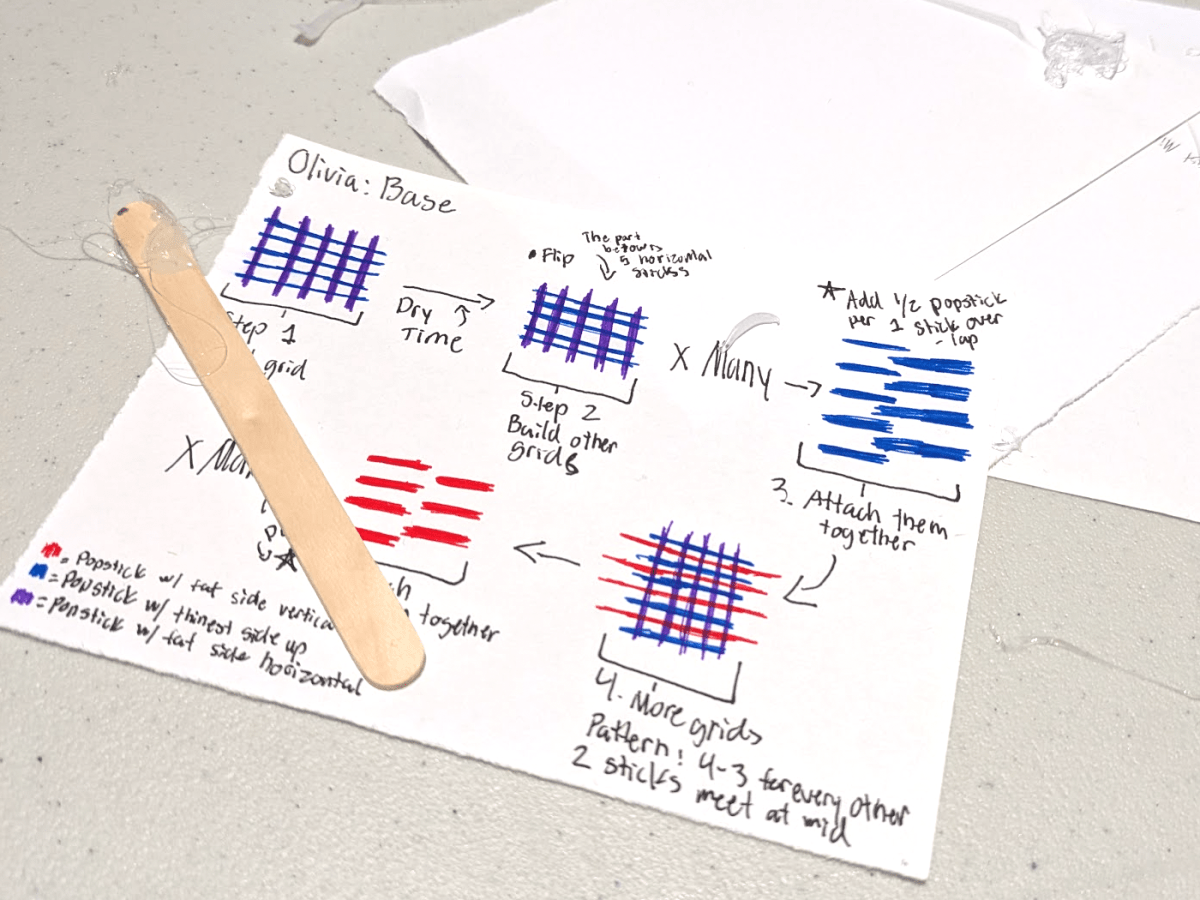 Olivia: Base
Step 1
grid
Dry
Time
• Flip
The part
5 horizontal
Step 2
Build other
grids
X Many →
★ Add 1/2 popstick
per 1 stick over
- lap
3. Attach them
together
4. More grids
Pattern: 4-3 for every other
2 sticks meet at mid
together
X
= Popstick w/ fat side
= Popstick w/ thinest side up
= Popstick w/ fat side horizontal